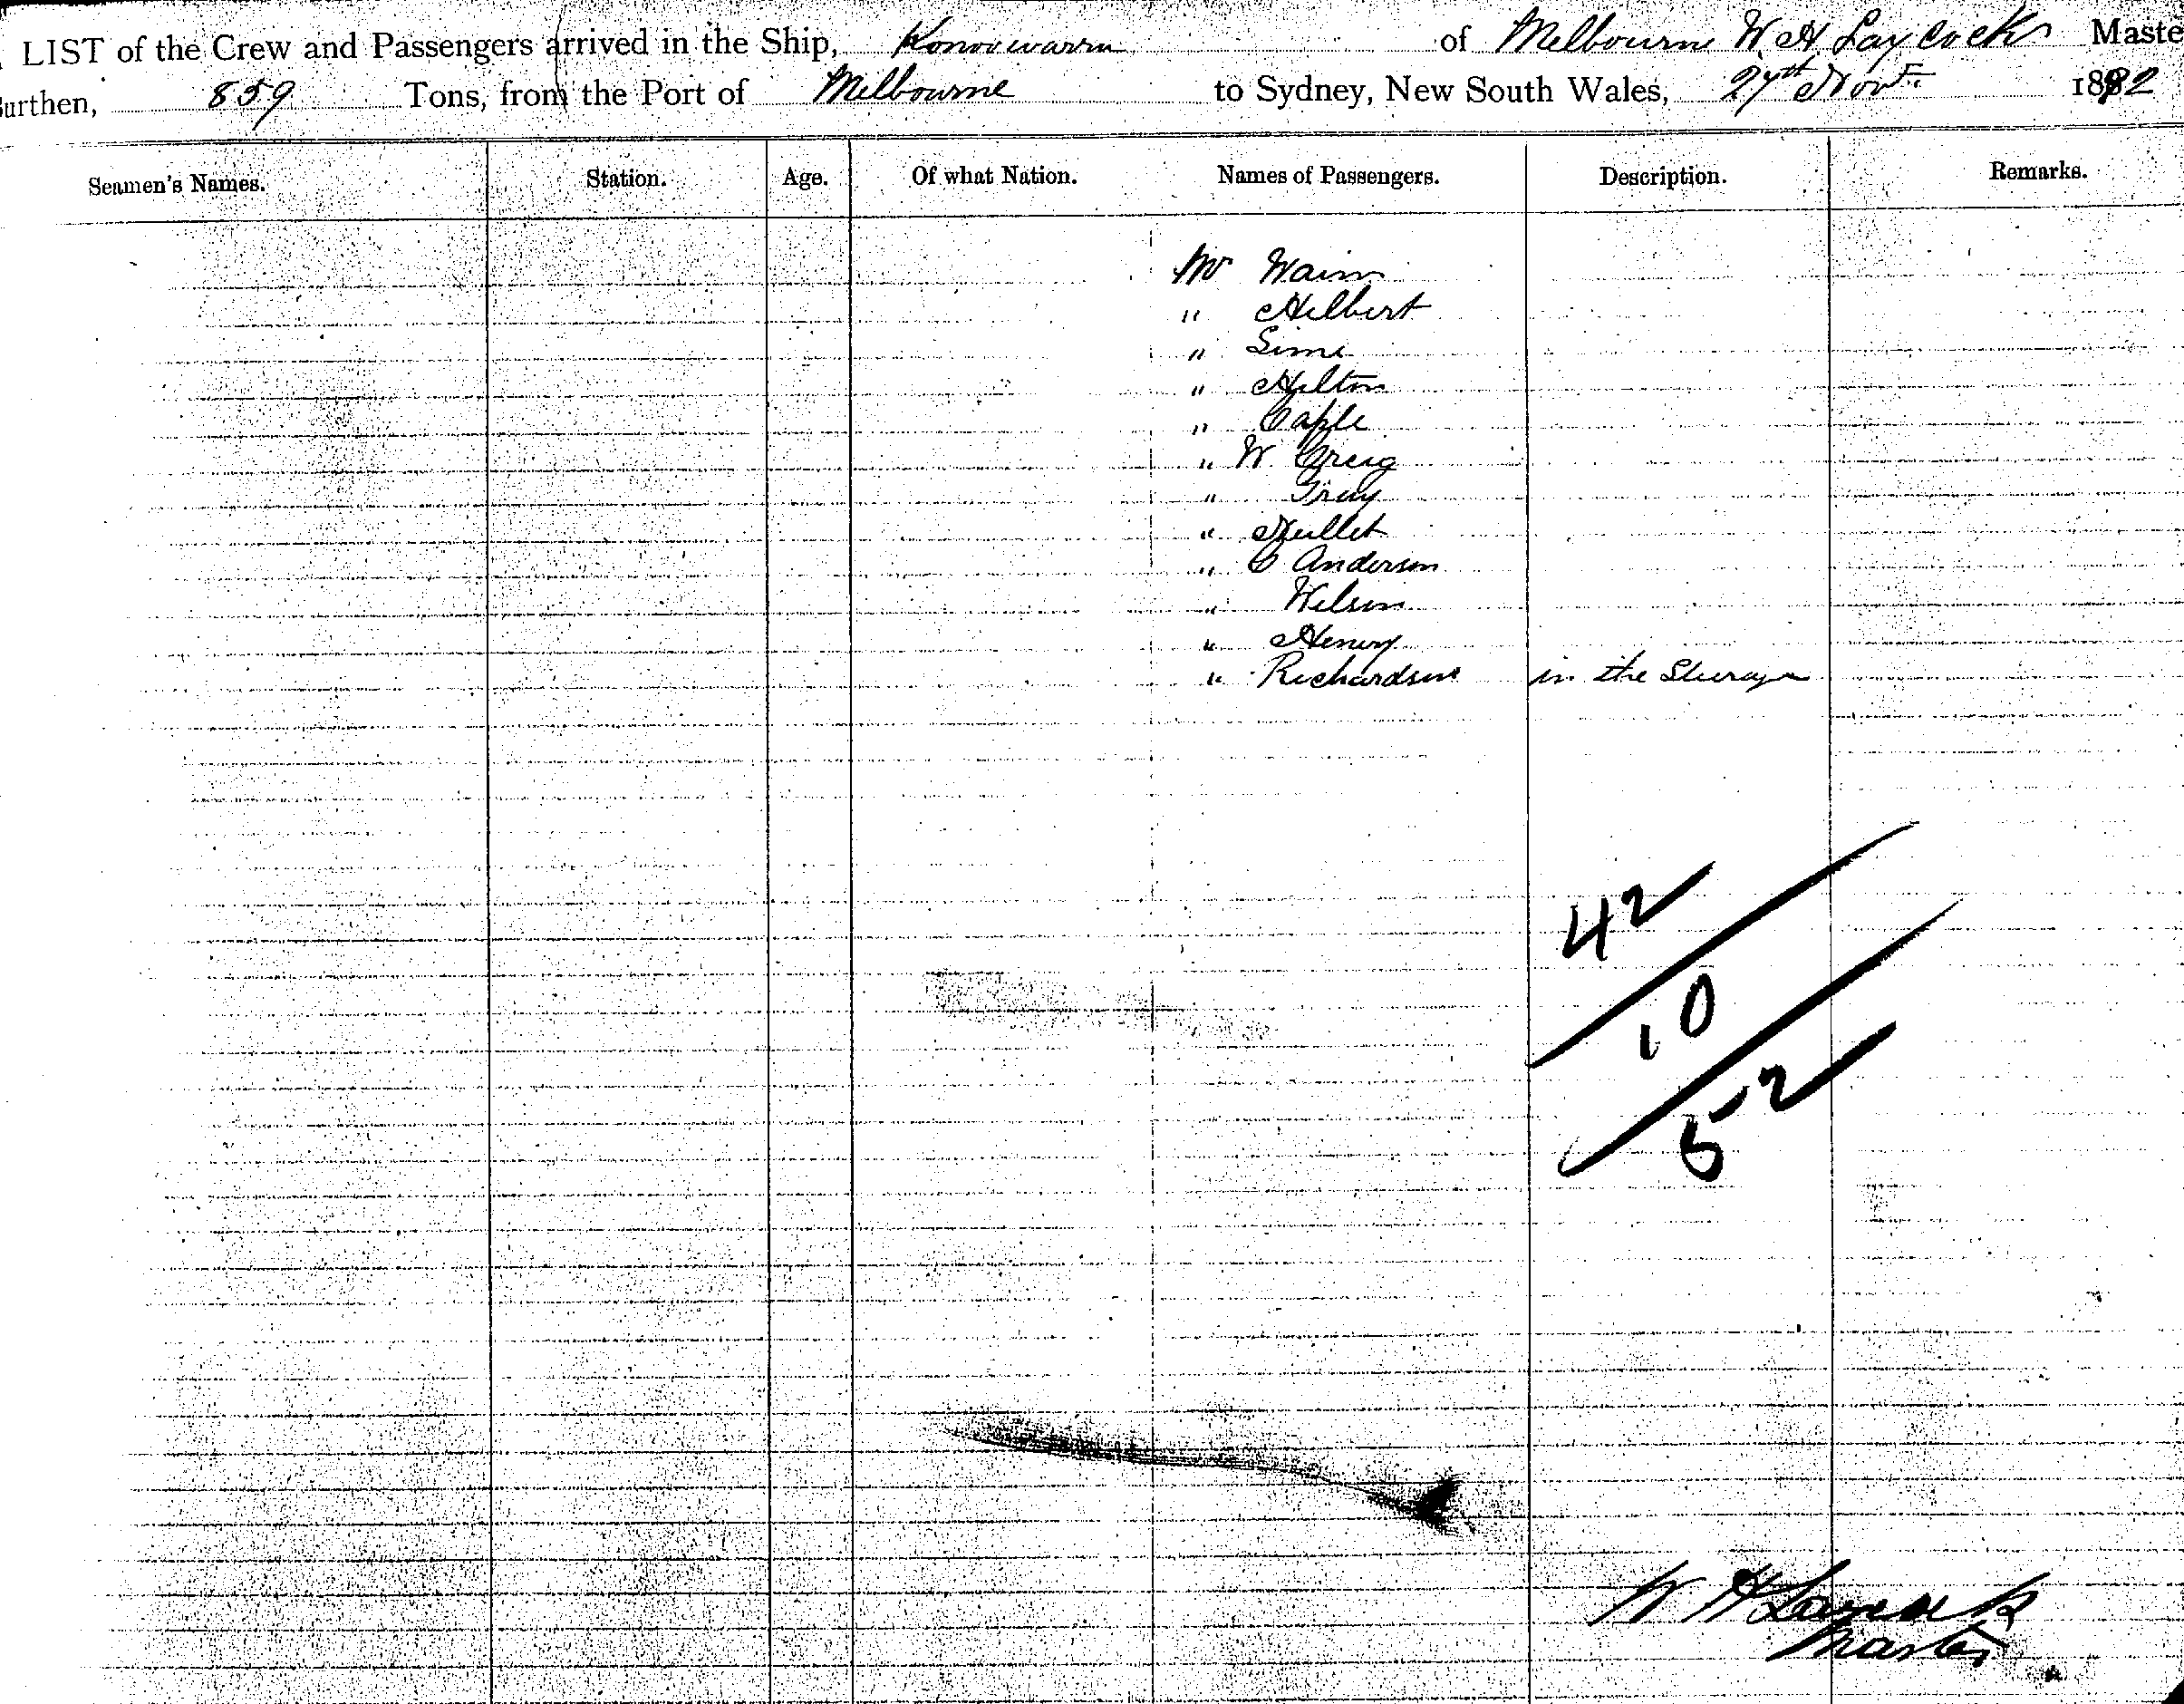 LIST of the Crew and Passengers arrived in the Ship, Konoowarra of Melbourne W H Laycock Maste
urthen, 859 Tons, from the Port of Melbourne to Sydney, New South Wales, 27th Novr. 1892
Seamen's Names. Station. Age. Of what Nation. Names of Passengers. Description. Remarks.
Mr
" Hilbert
" Sime
" Hylton
" Caple
" W Greig
" 
" Hullet
" C Anderson
" Wilson
" Henry
" Richardson in the Steerage
42
10
52
W H Laycock
Master